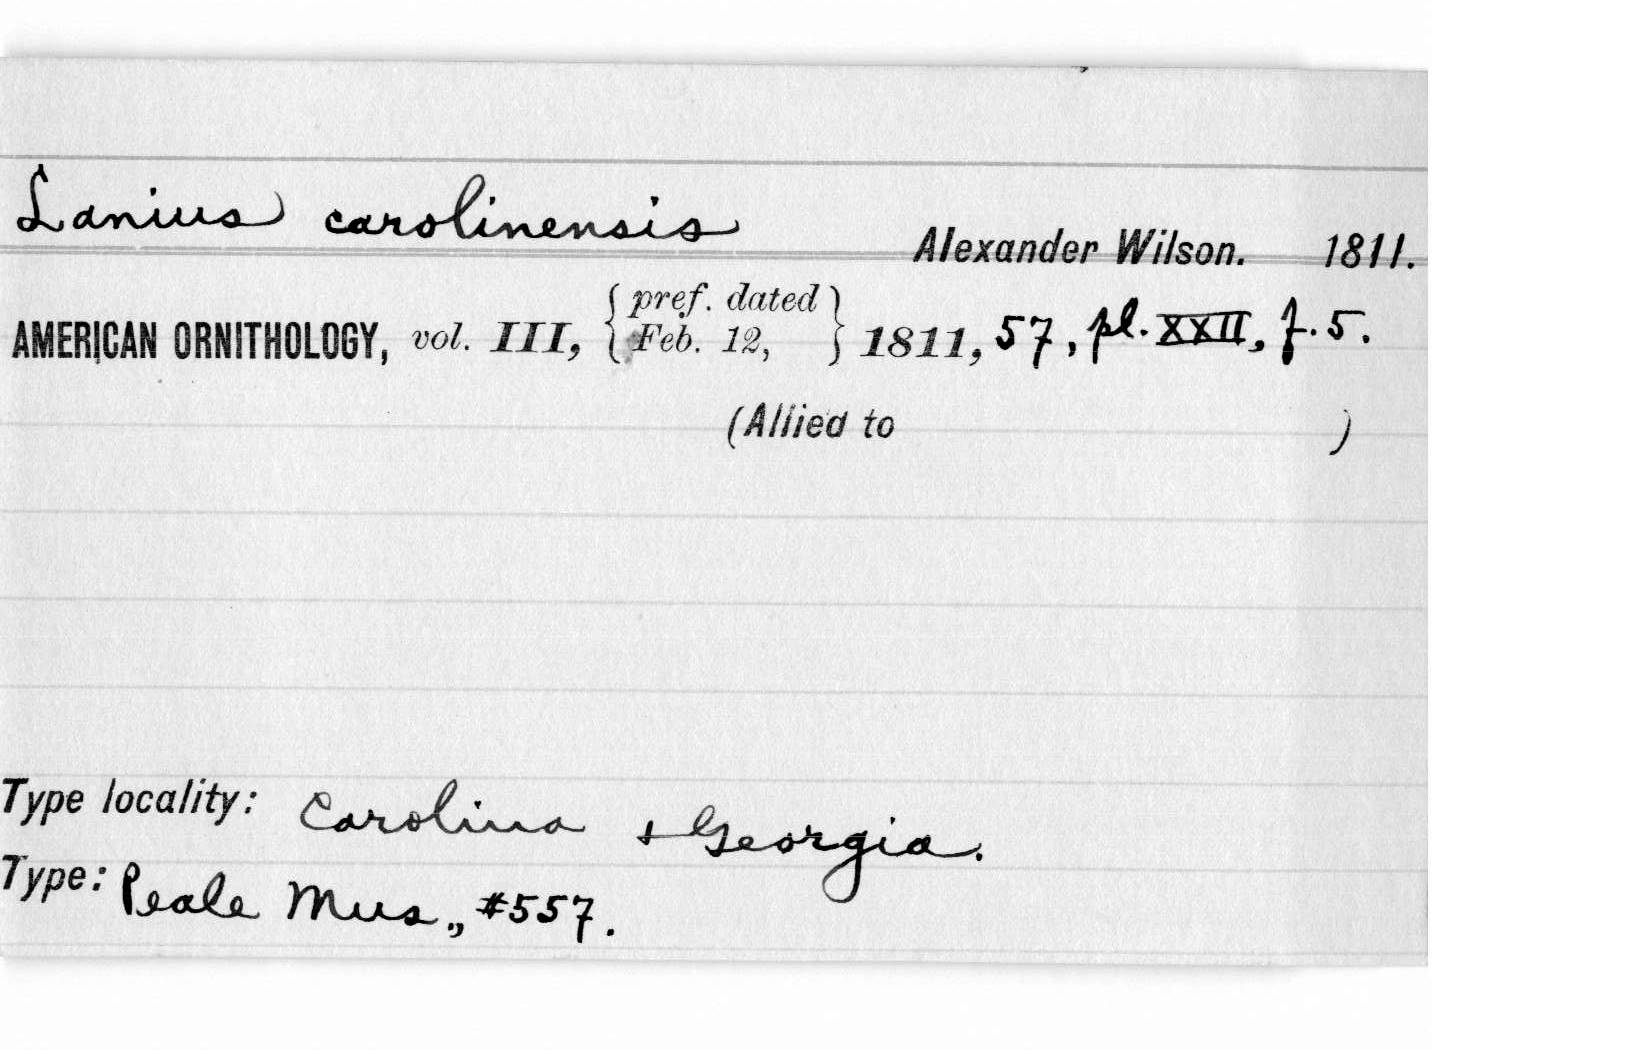 Lanius carolinensis
Alexander Wilson. 1811.
AMERICAN ORNITHOLOGY, vol. III, { pref. dated Feb. 12, } 1811, 57, pl. XXII, f. 5.
(Allied to )
Type locality: Carolina & Georgia.
Type: Peale Mus., #557.